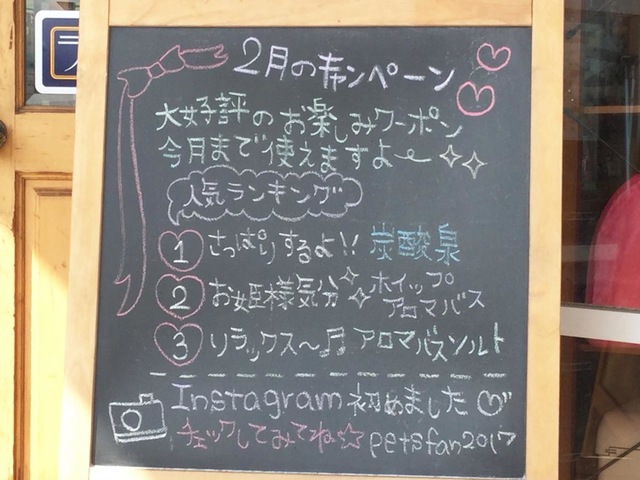 2月のキャンペーン
大好評のお楽しみクーポン
今月まで使えますよ〜
人気ランキング
1 さっぱりするよ!! 炭酸泉
2 お姫様気分 ホイップ
アロマバス
3 リラックス〜♬ アロマバスソルト
Instagram 初めました♡
チェックしてみてね☆ petsfan2017